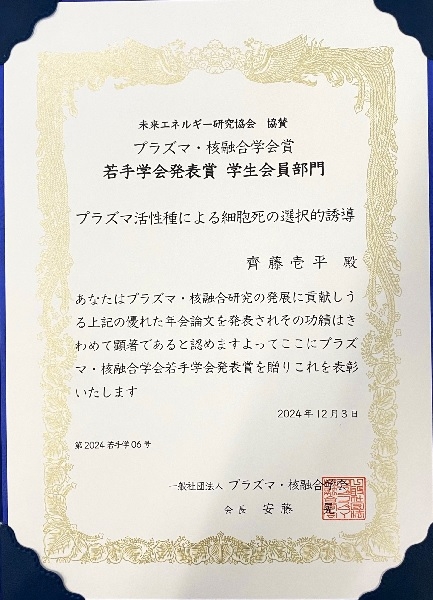 未来エネルギー研究協会 協賛
プラズマ・核融合学会賞
若手学会発表賞 学生会員部門
プラズマ活性種による細胞死の選択的誘導
齊藤壱平 殿
あなたはプラズマ・核融合研究の発展に貢献しう
る上記の優れた年会論文を発表されその功績はき
わめて顕著であると認めますよってここにプラズ
マ・核融合学会若手学会発表賞を贈りこれを表彰
いたします
2024年12月3日
第2024若手学06号
一般社団法人 プラズマ・核融合学会
会長 安藤 晃